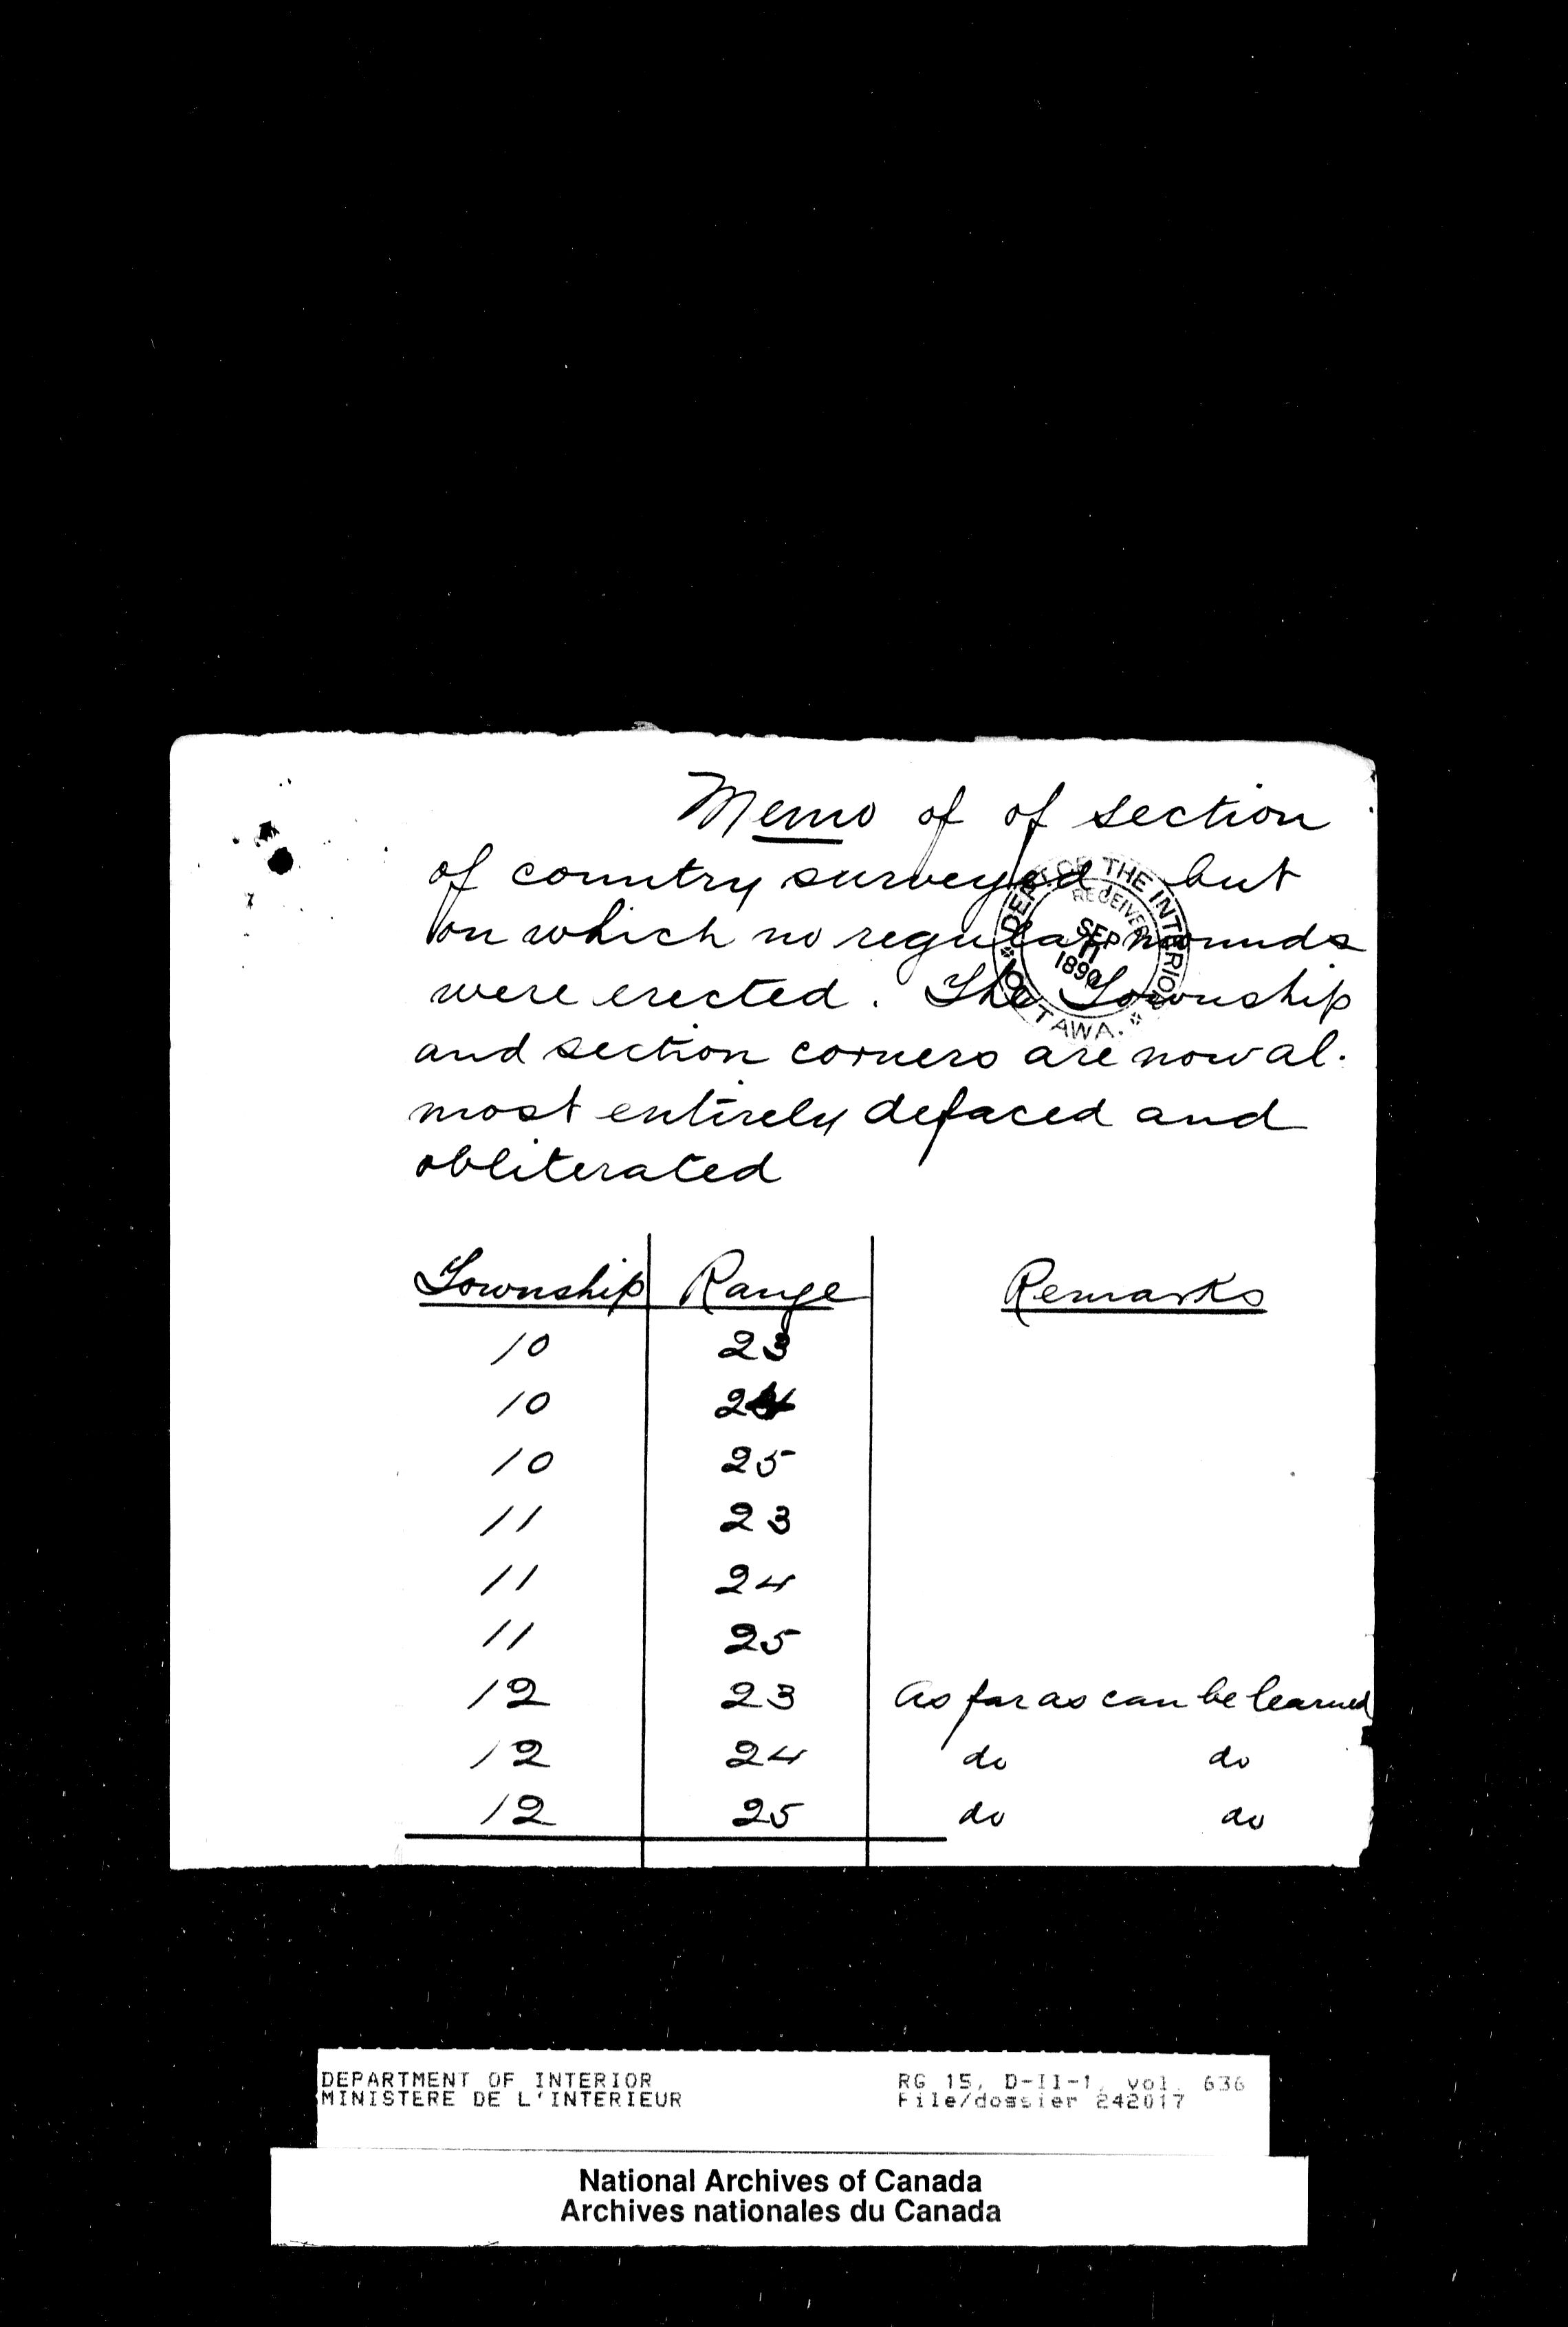 Memo of of section
of country surveyed, but
on which no regular mounds
were erected. The Township
and section corners are now al-
most entirely defaced and
obliterated
DEPT OF THE INTERIOR
RECEIVED
SEP
11
1890
OTTAWA.
Township Range Remarks
10 23
10 24
10 25
11 23
11 24
11 25
12 23 As far as can be learned
12 24 do do
12 25 do do
DEPARTMENT OF INTERIOR RG 15, D-II-1, vol. 636
MINISTERE DE L'INTERIEUR File/dossier 242017
National Archives of Canada
Archives nationales du Canada